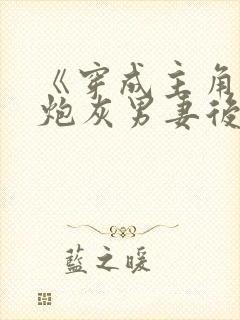 《穿成主角
炮灰男妻後
藍之暖